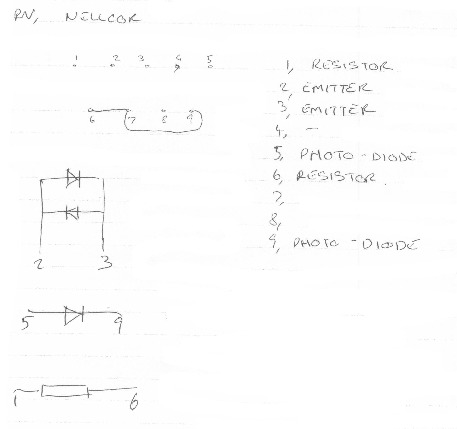 PN, NELLCOR
1 2 3 4 5
6 7 8 9
1, RESISTOR
2, EMITTER
3, EMITTER
4, -
5, PHOTO-DIODE
6, RESISTOR
7,
8,
9, PHOTO-DIODE
2 3
5 9
1 6